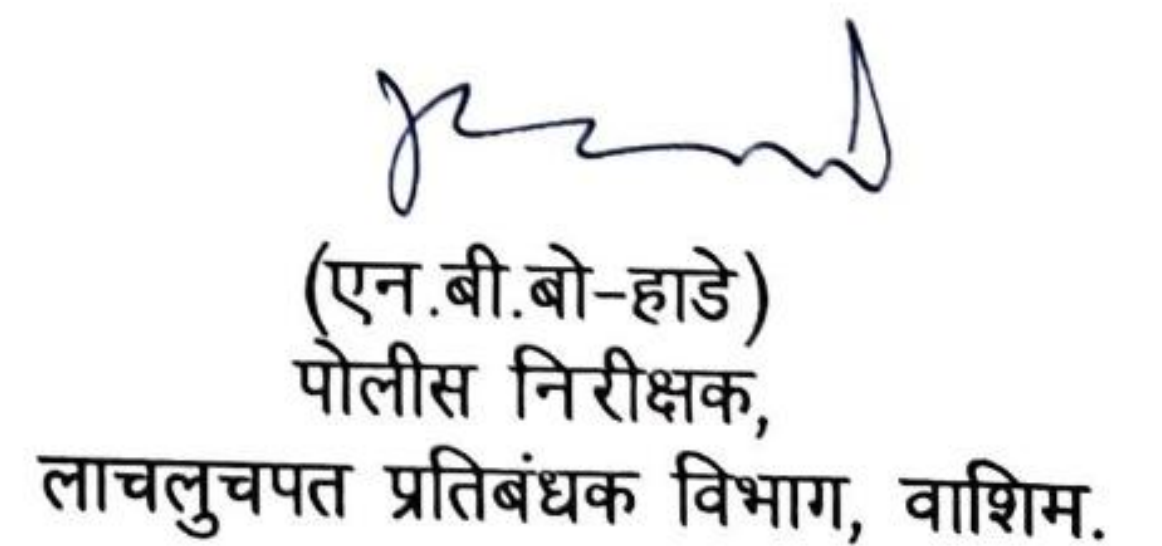 (एन.बी.बो-हाडे)
पोलीस निरीक्षक,
लाचलुचपत प्रतिबंधक विभाग, वाशिम.